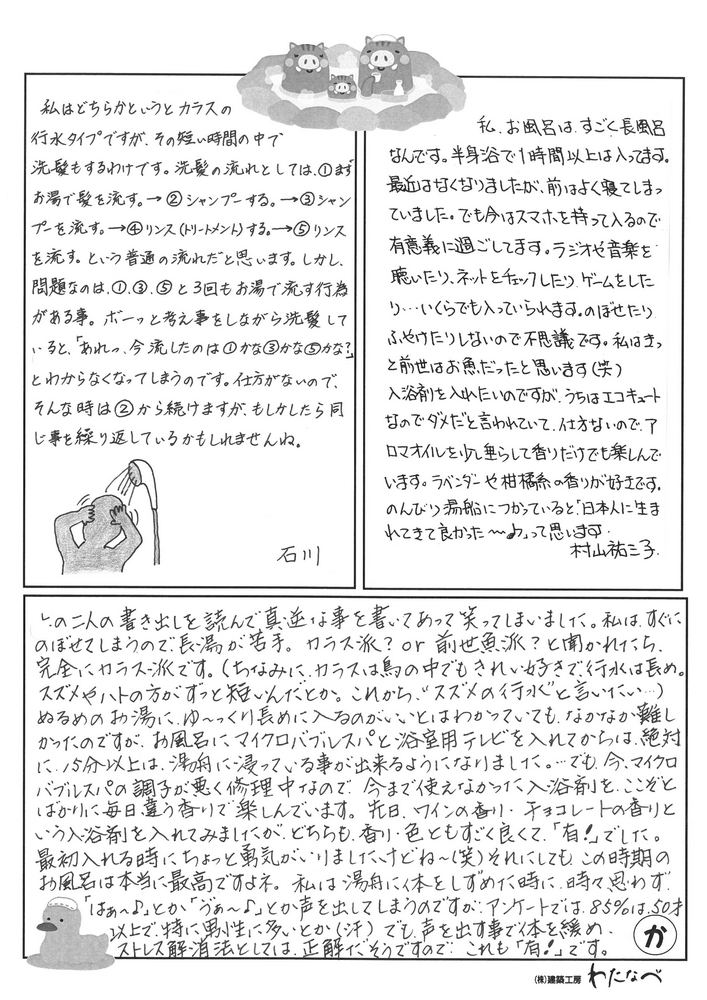 私はどちらかというとカラスの
行水タイプですが、その短い時間の中で
洗髪もするわけです。洗髪の流れとしては、①まず
お湯で髪を流す。→②シャンプーする。→③シャン
プーを流す。→④リンス(トリートメント)する。→⑤リンス
を流す。という普通の流れだと思います。しかし、
問題なのは、①、③、⑤と3回もお湯で流す行為
がある事。ボーっと考え事をしながら洗髪して
いると、「あれっ、今流したのは①かな③かな⑤かな?」
とわからなくなってしまうのです。仕方がないので、
そんな時は②から続けますが、もしかしたら同
じ事を繰り返しているかもしれませんね。
石川
私、お風呂は、すごく長風呂
なんです。半身浴で1時間以上は入ってます。
最近はなくなりましたが、前はよく寝てしまっ
ていました。でも今はスマホを持って入るので
有意義に過ごしてます。ラジオや音楽を
聴いたり、ネットをチェックしたり、ゲームをした
り…いくらでも入っていられます。のぼせたり
ふやけたりしないので不思議です。私はきっ
と前世はお魚だったと思います(笑)
入浴剤を入れたいのですが、うちはエコキュート
なのでダメだと言われていて、仕方ないので、ア
ロマオイルを少し垂らして香りだけでも楽しんで
います。ラベンダーや柑橘系の香りが好きです。
のんびり湯船につかっていると「日本人に生ま
れてきて良かった〜♪」って思います。
村山祐三子
上の二人の書き出しを読んで真逆な事を書いてあって笑ってしまいました。私は、すぐに
のぼせてしまうので長湯が苦手。カラス派?or前世魚派?と聞かれたら、
完全にカラス派です。(ちなみに、カラスは鳥の中でもきれい好きで、行水は長め。
スズメやハトの方がずっと短いんだとか。これから、“スズメの行水”と言いたい…)
ぬるめのお湯に、ゆ〜っくり長めに入るのがいいとはわかっていても、なかなか難し
かったのですが、お風呂に、マイクロバブルスパと浴室用テレビを入れてからは、絶対
に、15分以上は、湯舟に浸っている事が出来るようになりました。…でも、今、マイクロ
バブルスパの調子が悪く修理中なので、今まで使えなかった入浴剤を、ここぞと
ばかりに毎日違う香りで楽しんでいます。先日、ワインの香り・チョコレートの香りと
いう入浴剤を入れてみましたが、どちらも、香り・色ともすごく良くて、「有!」でした。
最初入れる時にちょっと勇気がいりましたけどね〜(笑)それにしても、この時期の
お風呂は本当に最高ですよネ。私は湯舟に体をしずめた時に、時々思わず、
「はぁ〜♪」とか「うぁ〜♪」とか声を出してしまうのですが、アンケートでは、85%は、50才
以上で、特に男性に多いとか(汗)でも、声を出す事で体を緩め、
ストレス解消法としては、正解だそうですので、これも「有!」です。
か
(株)建築工房 わたなべ